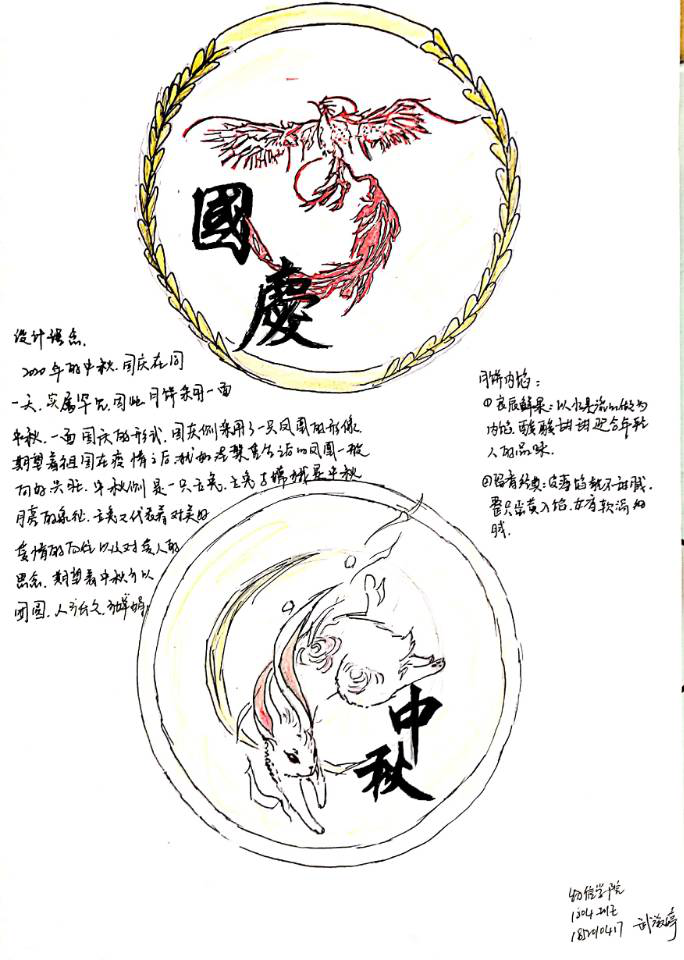 國
慶
设计理念.
2020年的中秋.国庆在同
一天,实属罕见,因此月饼采用一面
中秋.一面国庆的形式.国庆侧采用了一只凤凰的形象
期望着祖国在疫情之后犹如涅槃重生的凤凰一般
向的兴旺.中秋侧是一只玉兔.玉兔与嫦娥是中秋
月亮的象征.玉兔又代表着对美好
爱情的向往以及对爱人的
思念.期望着中秋可以
团圆.人长久.
月饼内馅:
①良辰鲜果:以水果流心做为
内馅.酸酸甜甜迎合年轻
人的品味.
②留有经典:
蛋黄入馅.
腻.
中
秋
物信学院
185210417